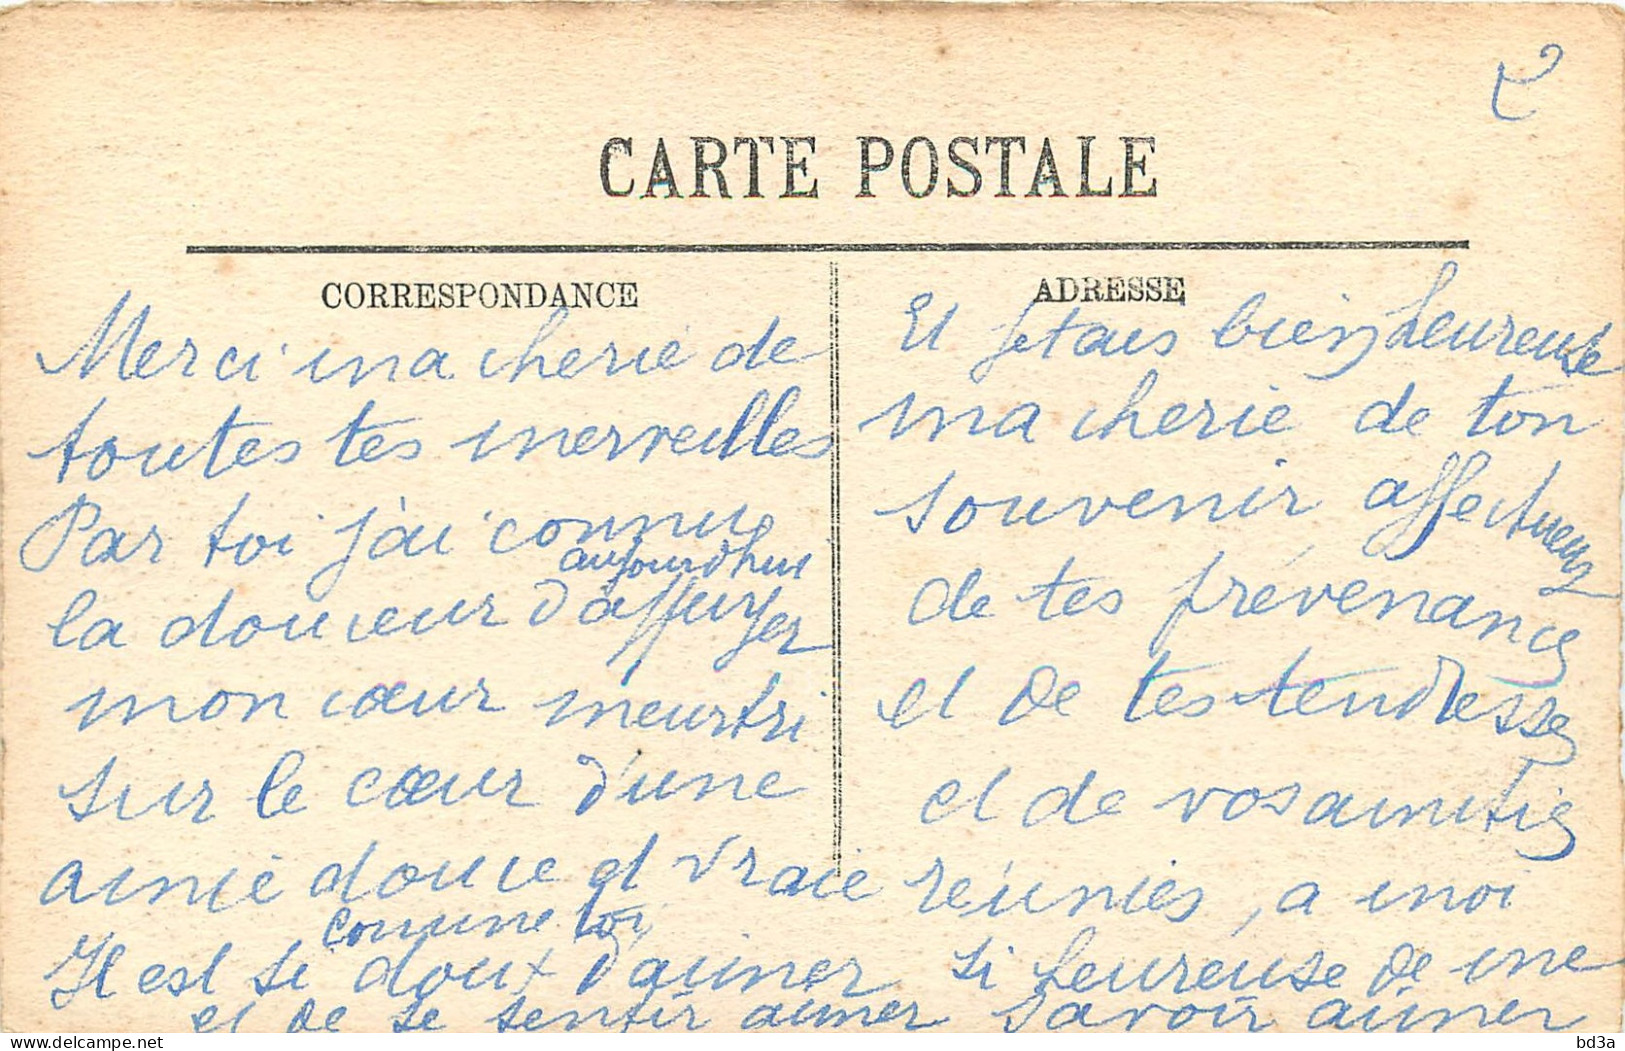 CARTE POSTALE
CORRESPONDANCE
Merci ma cherie de
toutes tes merveilles
Par toi j'ai connu
aujourdhui
la douceur d'appuyer
mon cœur meurtri
sur le cœur d'une
amie douce et vraie
comme toi
Il est si doux d'aimer
et de se sentir aimer
ADRESSE
Et jetais bien heureuse
ma cherie de ton
souvenir affectueux
de tes prévenances
et de tes tendresses
et de vos amitiés
réunies, a moi
si heureuse de me
savoir aimer
delcampe.net
bd3a